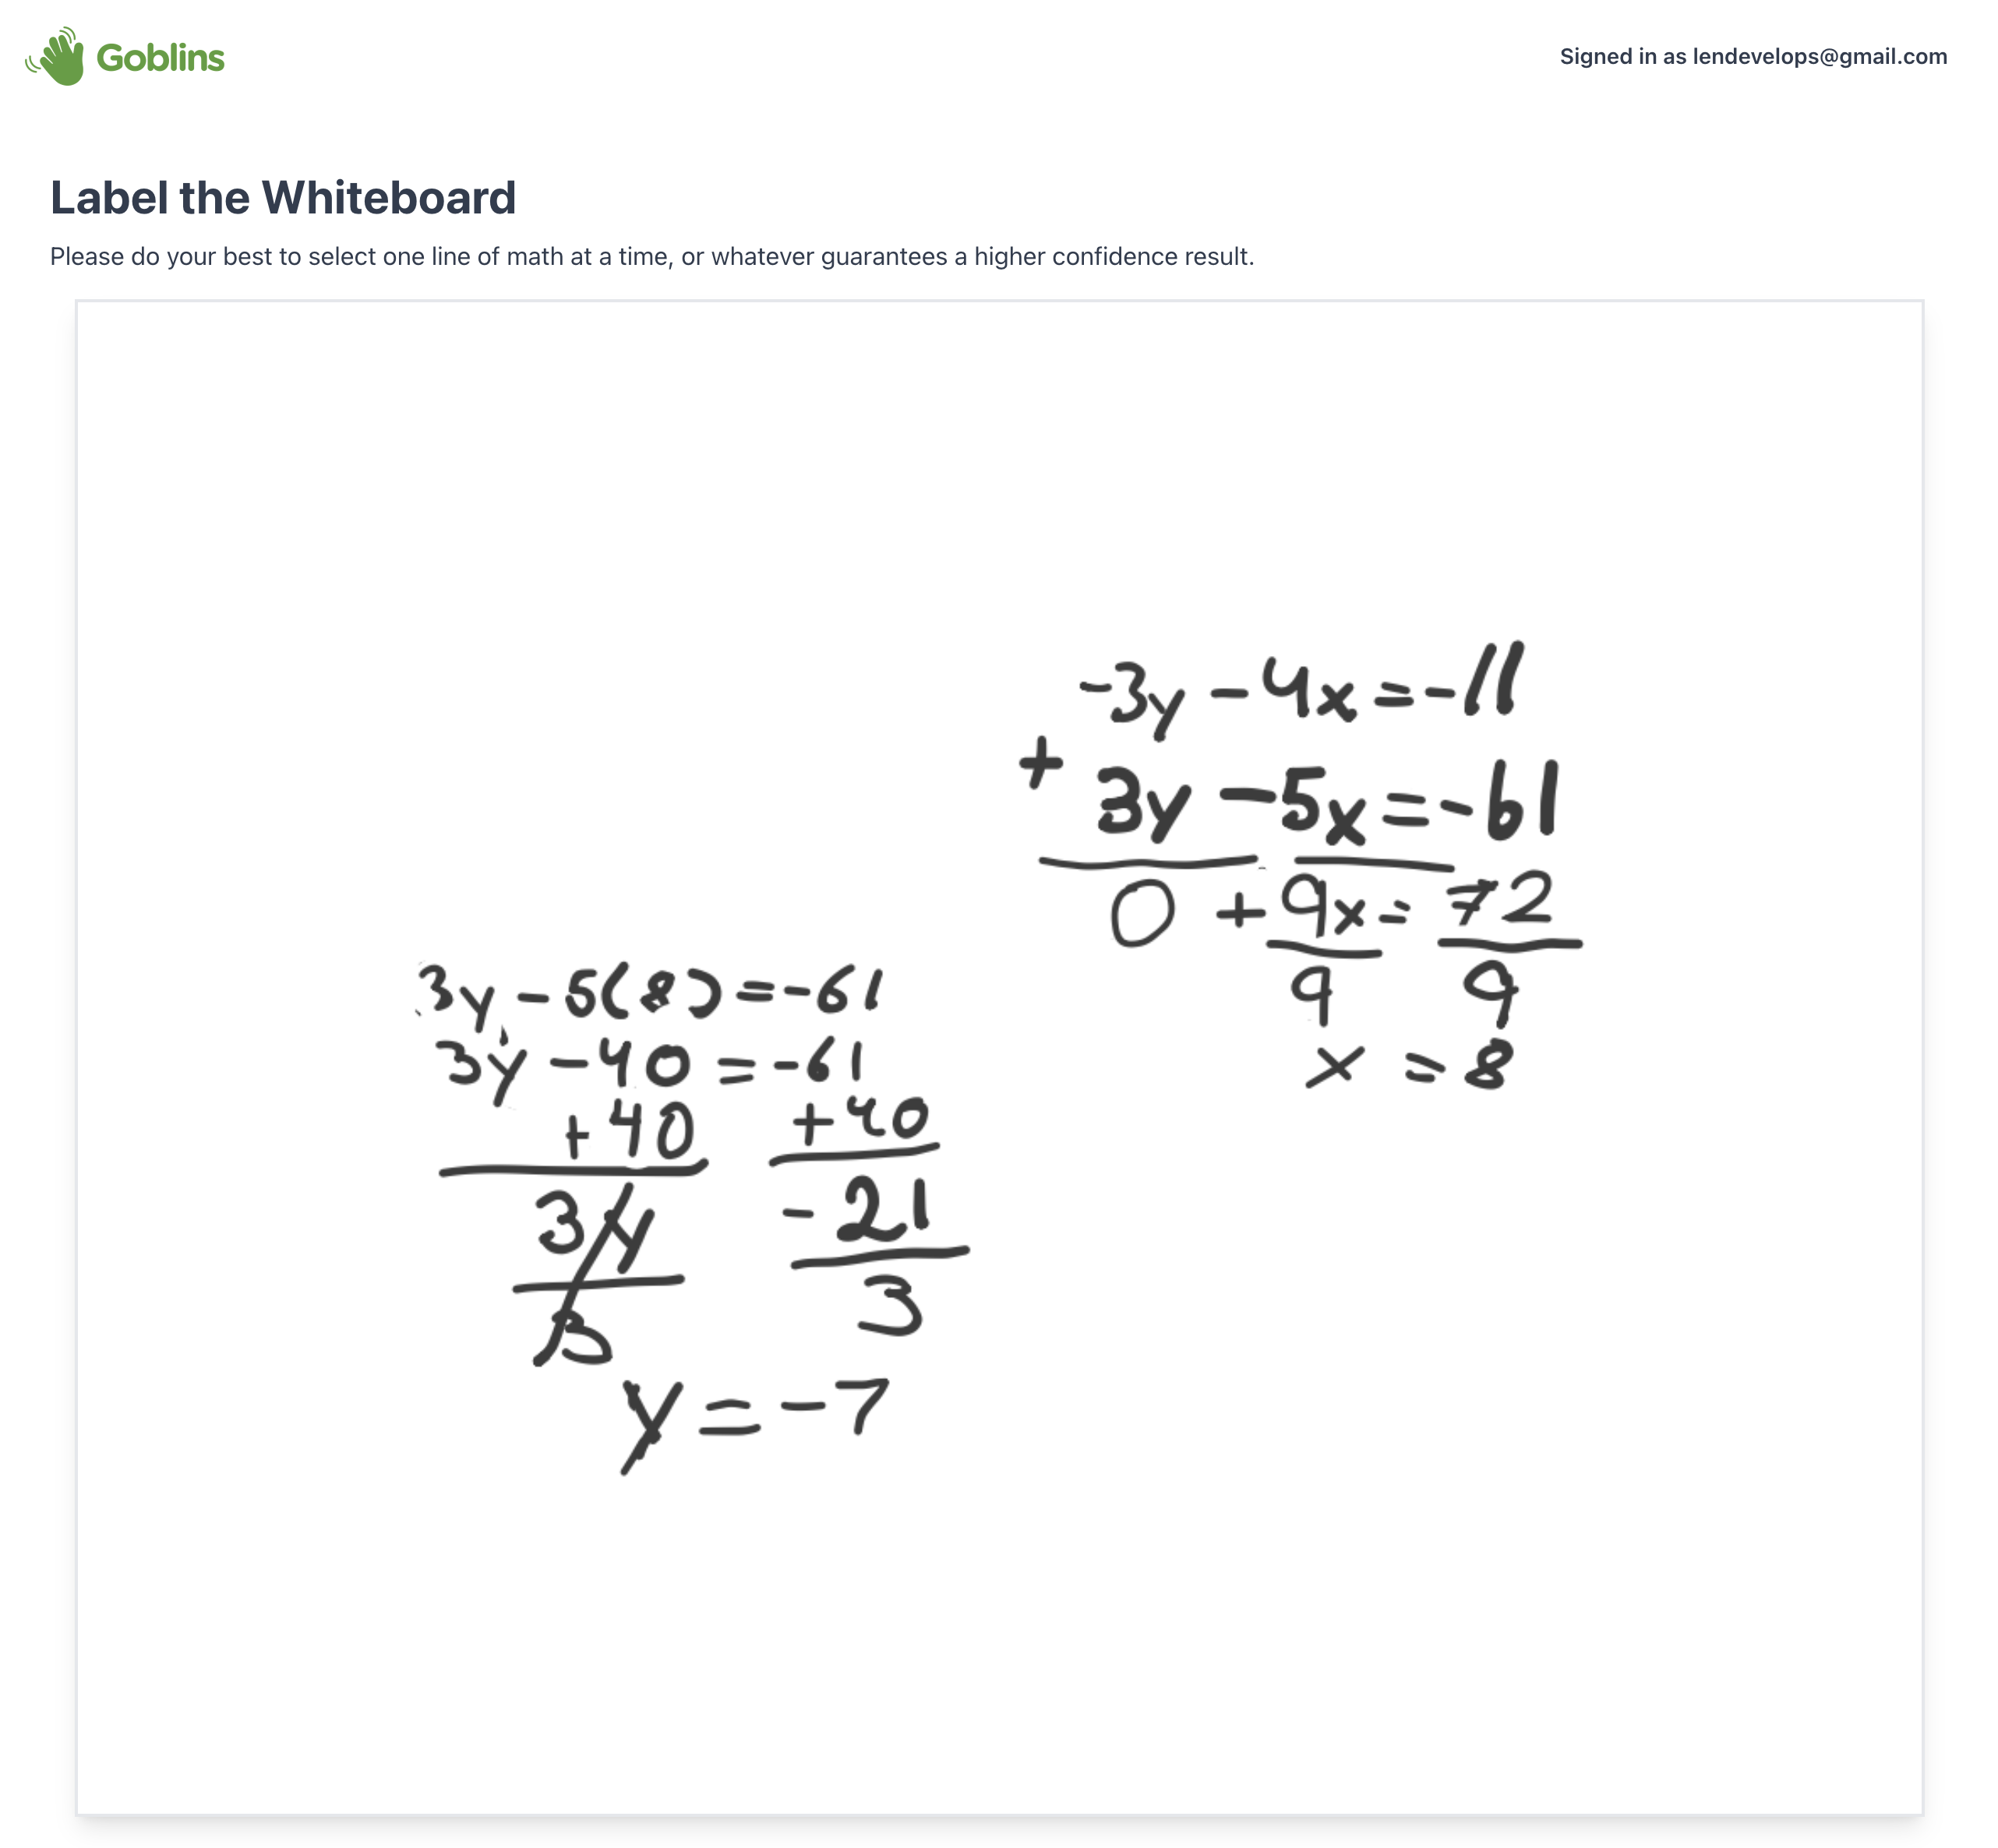 Goblins
Signed in as lendevelops@gmail.com
Label the Whiteboard
Please do your best to select one line of math at a time, or whatever guarantees a higher confidence result.
-3y - 4x = -11
+ 3y - 5x = -61
0 + 9x = 72
9 9
x = 8
3y - 5(8) = -61
3y - 40 = -61
+40 +40
3y -21
3 3
y = -7